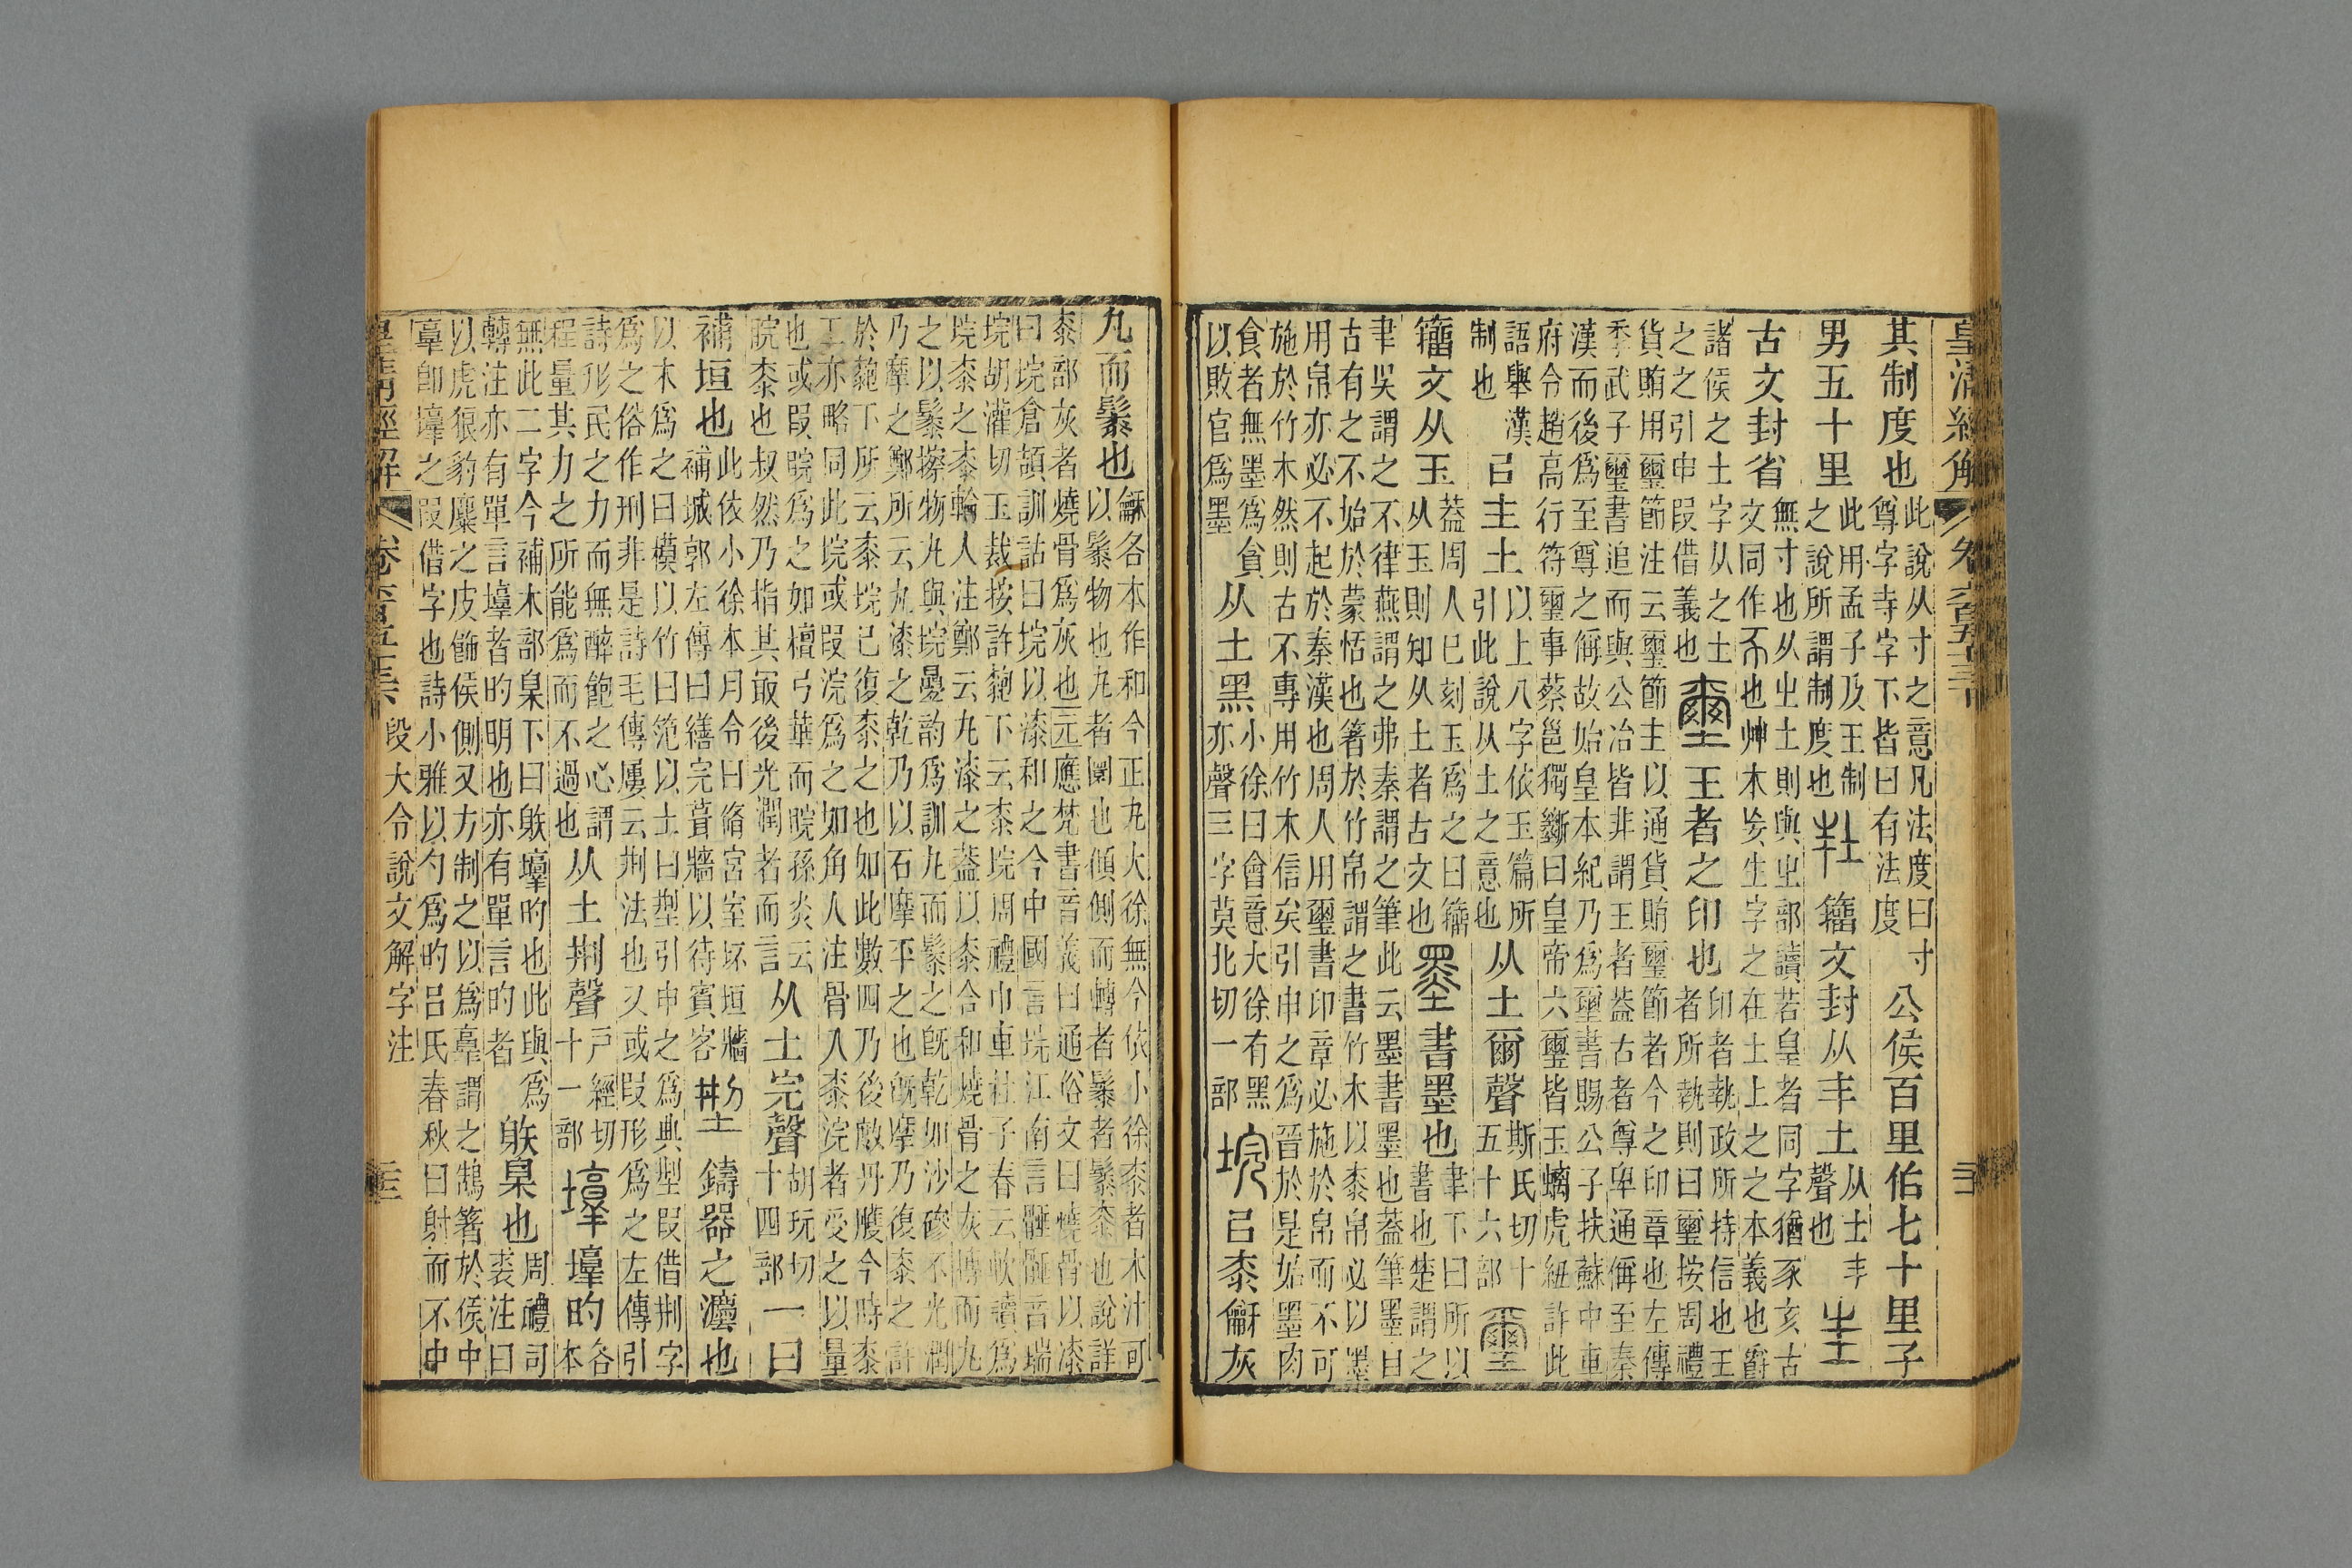 皇清經解
其制度也
此說从寸之意凡法度曰寸
尊字寺字下皆曰有法度
公侯百里伯七十里子
男五十里
此用孟子及王制
之說所謂制度也
籒文封从丰土
从土丰
聲也
古文封省
無寸也从㞢土則與㞢部讀若皇者同字猶豕亥古
文同作也艸木妄生字之在土上之之本義也爵
諸侯之土字从之土
之之引申叚借義也
壐王者之印也
印者執政所持信也王
者所執則曰璽按周禮
貨賄用璽節注云璽節主以通貨賄璽節者今之印章也左傳
季武子璽書追而與公冶皆非謂王者葢古者尊卑通偁至秦
漢而後爲至尊之偁故始皇本紀乃爲璽書賜公子扶蘇中車
府令趙高行符璽事蔡邕獨斷曰皇帝六璽皆玉螭虎紐許此
語舉漢
制也
㠯主土
以上八字依玉篇所
引此說从土之意也
从土爾聲
斯氏切十
五十六部
璽
籒文从玉
葢周人已刻玉爲之曰籒
从玉則知从土者古文也
墨書墨也
聿下曰所以
書也楚謂之
聿吳謂之不律燕謂之弗秦謂之筆此云墨書墨也葢筆墨自
古有之不始於蒙恬也箸於竹帛謂之書竹木以桼帛必以墨
用帛亦必不起於秦漢也周人用璽書印章必施於帛而不可
施於竹木然則古不專用竹木信矣引申之爲晉於是始墨肉
食者無墨爲貪
以敗官爲墨
从土黑
小徐曰會意大徐有黑
亦聲三字莫北切一部
垸㠯桼龢灰
丸而髹也
龢各本作和今正丸大徐無今依小徐桼者木汁可
以髹物也丸者圜也傾側而轉者髹者髹桼也說詳
桼部灰者燒骨爲灰也元應梵書音義曰通俗文曰燒骨以漆
曰垸倉頡訓詁曰垸以漆和之今中國言垸江南言䯡䯡音瑞
垸胡灌切玉裁按許䵗下云桼垸周禮巾車杜子春云軟讀爲
垸桼之桼輪人注鄭云丸漆之葢以桼合和燒骨之灰摶而丸
之以髹擦物丸與垸曡韵爲訓丸而髹之旣乾如沙磣不光潤
乃摩之鄭所云丸漆之乾乃以石摩平之也旣摩乃復桼之許
於䵗下所云桼垸已復桼之也如此數四乃後敿丹雘今時桼
工亦略同此垸或叚浣爲之如角人注骨入桼浣者受之以量
也或叚睆爲之如檀弓華而睆孫炎云
睆桼也叔然乃指其㝡後光潤者而言
从土完聲
胡玩切
十四部
一曰
補垣也
此依小徐本月令曰脩宮室坏垣牆
補城郭左傳曰繕完葺牆以待賓客
型鑄器之灋也
以木爲之曰模以竹曰笵以土曰型引申之爲典型叚借荆字
爲之俗作刑非是詩毛傳屢云荆法也又或叚形爲之左傳引
詩形民之力而無醉飽之心謂
程量其力之所能爲而不過也
从土荆聲
戸經切
十一部
壿壿的
各
本
無此二字今補木部臬下曰䠶壿的也此與爲
轉注亦有單言壿者的明也亦有單言的者
䠶臬也
周禮司
裘注曰
以虎狼豹麋之皮飾侯側又方制之以爲𦎫謂之鵠箸於侯中
𦎫卽壿之叚借字也詩小雅以勺爲的呂氏春秋曰射而不中
皇清經解
段大令說文解字注